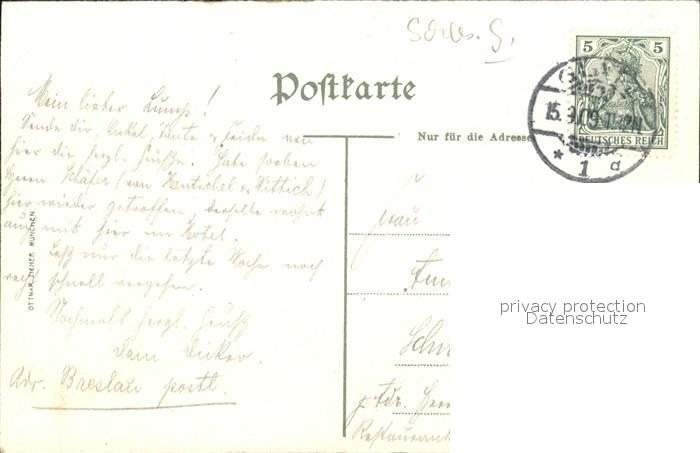 Schles. G.
5 5
15.9.09. 11-12N
DEUTSCHES REICH
* 1 d
Postkarte
Nur für die Adresse
Mein lieber Lump!
Sende dir, Onkel, Tante & Frida von
hier die herzl. Grüße. Habe soeben
Herrn Schäfer (von Hentschel & Wittich)
hier wieder getroffen, derselbe wohnt
auch mit hier im Hotel.
Laß nur die letzte Woche noch
recht schnell vergehen.
Nochmals herzl. Gruß
Dein Dicker.
Adr. Breslau postl.
OTTMAR ZIEHER MÜNCHEN
Frau
z. Adr. Herr
Restaurant
privacy protection
Datenschutz